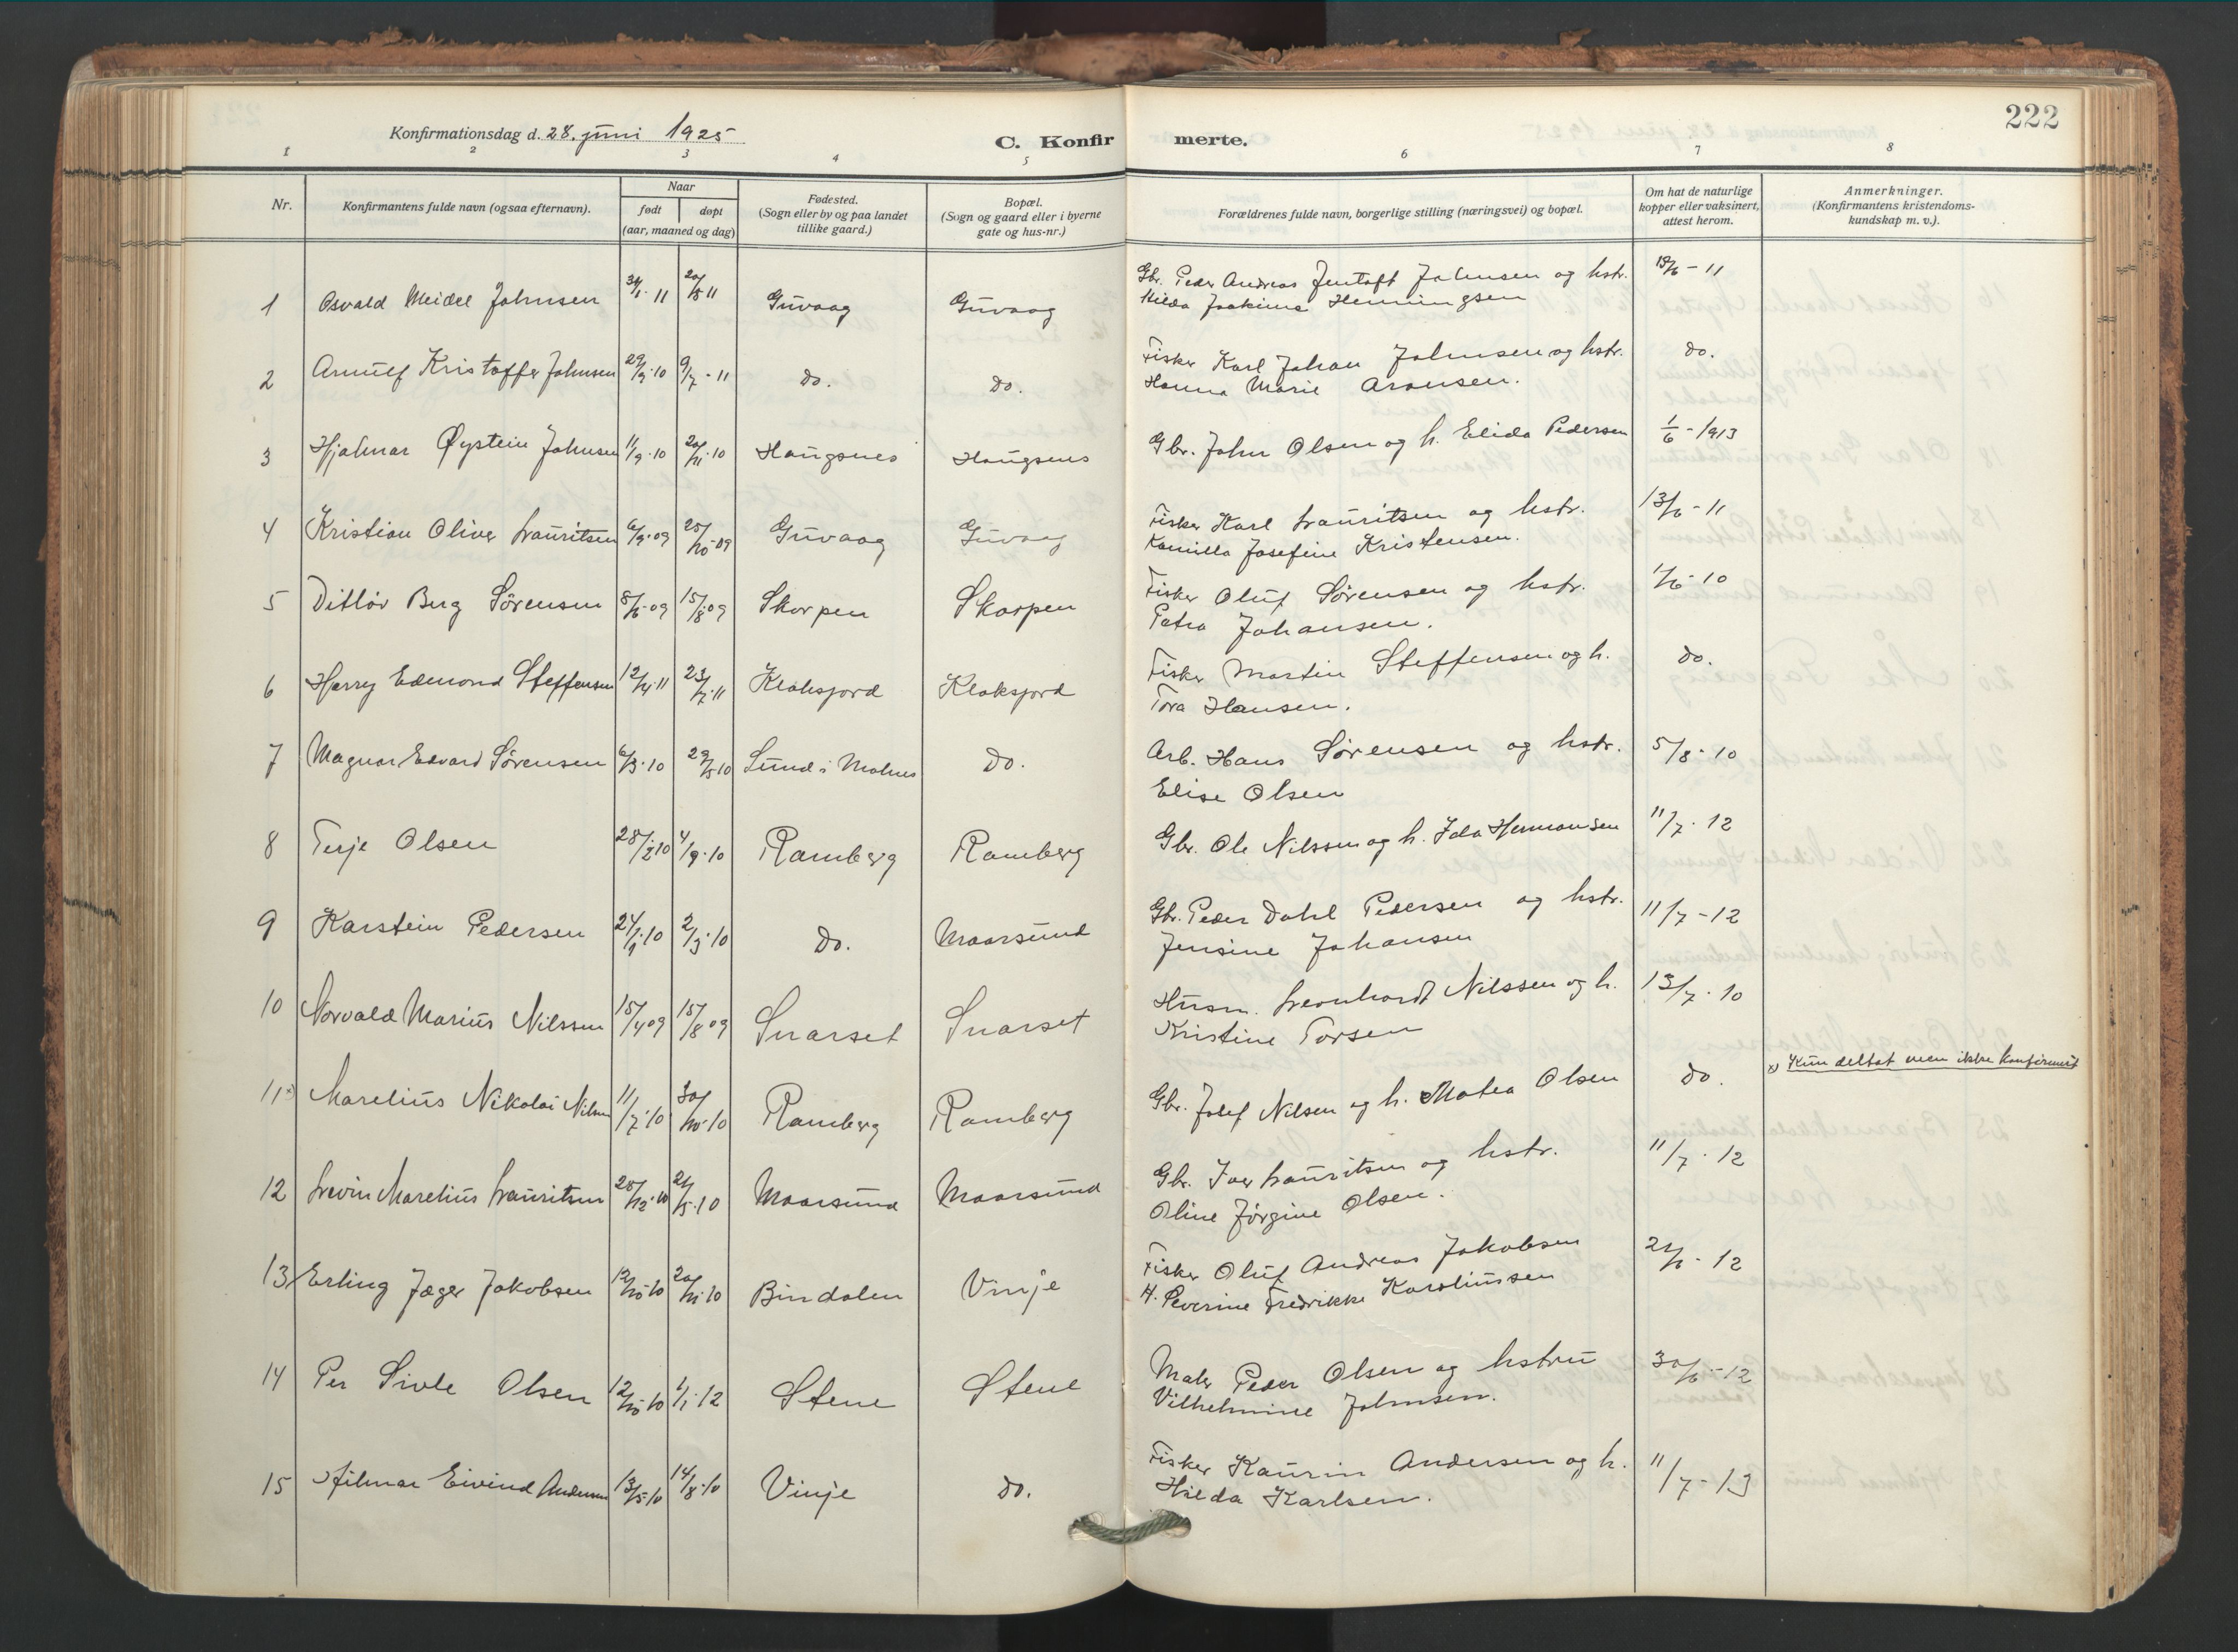 222
Konfirmationsdag d. 28. juni 1925
C. Konfirmerte.
1 2 3 4 5 6 7 8
Nr.
Konfirmantens fulde navn (ogsaa efternavn).
Naar
født døpt
(aar, maaned og dag)
Fødested.
(Sogn eller by og paa landet
tillike gaard.)
Bopæl.
(Sogn og gaard eller i byerne
gate og hus-nr.)
Forældrenes fulde navn, borgerlige stilling (næringsvei) og bopæl.
Om hat de naturlige
kopper eller vaksinert,
attest herom.
Anmerkninger.
(Konfirmantens kristendoms-
kundskap m. v.).
1 Osvald Meidel Johnsen 11 20/8 11 Guvaag Guvaag Gbr. Peder Andreas Jentoft Johnsen og hstr. - 11
Hilda Joakime Henningsen
2 Arnulf Kristoffer Johnsen 29/9·10 9/7-11 do. do. Fisker Karl Johan Johnsen og hstr. do.
Hanna Marie Aronsen.
3 Hjalmar Øystein Johnsen 11/9·10 20/11·10 Haugsnes Haugsnes Gbr. John Olsen og h. Elida Pedersen 1/6-1913
4 Kristian Oliver Lauritsen 6/9·09 25/10-09 Guvaag Guvaag Fisker Karl Lauritsen og hstr. 13/6-11
Kamilla Josefine Kristensen.
5 Ditløv Berg Sörensen 8/6·09 15/8·09 Skorpen Skorpen Fisker Oluf Sörensen og hstr. 1/6·10
Petra Johansen.
6 Harry Edmond Steffensen 12/4·11 23/7·11 Kloksjord Kloksjord Fisker Martin Steffensen og h. do.
Tora Hansen.
7 Magnar Edvard Sörensen 6/3·10 29/5 10 Sund i Malnes do. Arb. Hans Sörensen og hstr. 5/8·10
Elise Olsen
8 Terje Olsen 28/2·10 4/9·10 Ramberg Ramberg Gbr. Ole Nilssen og h. Ida Hermansen 11/7·12
9 Karstein Pedersen 24/1·10 2/3·10 do. Maarsund Gbr. Peder Dahl Pedersen og hstr. 11/7-12
Jensine Johansen
10 Norvald Marius Nilssen 15/4 09 15/8 09 Snarset Snarset Husm. Leonhardt Nilssen og h. 13/7·10
Kristine Torsen
11 x) Marelius Nikolai Nilsen 11/7·10 30/10·10 Ramberg Ramberg Gbr. Jolef Nilsen og h. Motea Olsen do. x) Kun deltat men ikke konfirmert
12 Levin Marelius Lauritsen 28/12·10 /5·10 Maarsund Maarsund Gbr. Iver Lauritsen og hstr. 11/7·12
Oline Jörgine Olsen.
13 Erling Jæger Jakobsen 12/10·10 20/11·10 Bindalen Vinje Fisker Oluf Andreas Jakobsen 21/6·12
H. Peverine Fredrikke Karoliussen
14 Per Sivle Olsen 12/10·10 1/1·12 Stene Stene Maler Peder Olsen og hstru 30/6-12
Vilhelmine Johnsen.
15 Hilmar Eivind Andersen 13/5·10 14/8·10 Vinje do. Fisker Kaurin Andersen og h. 11/7-13
Hilda Karlsen.